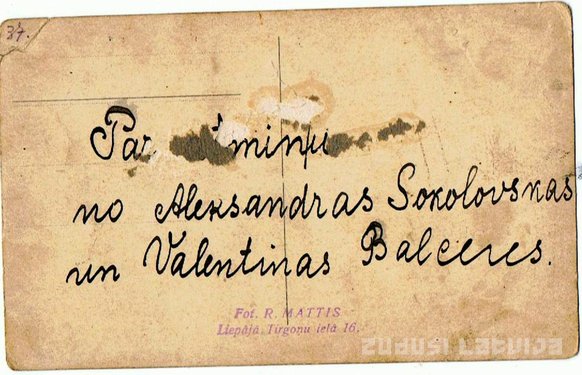 37.
Par
no Aleksandras Sokolovskas
un Valentinas Balceres.
Fot. R. MATTIS
Liepājā, Tirgoņu ielā 16.
zudusi Latvija